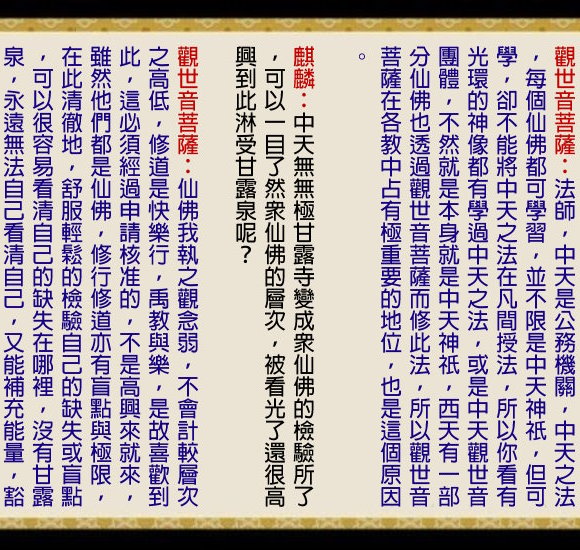 觀世音菩薩：法師，中天是公務機關，中天之法
，每個仙佛都可學習，並不限是中天神祇，但可
學，卻不能將中天之法在凡間授法，所以你看有
光環的神像都有學過中天之法，或是中天觀世音
團體，不然就是本身就是中天神祇，西天有一部
分仙佛也透過觀世音菩薩而修此法，所以觀世音
菩薩在各教中占有極重要的地位，也是這個原因
。
麒麟：中天無無極甘露寺變成眾仙佛的檢驗所了
，可以一目了然眾仙佛的層次，被看光了還很高
興到此淋受甘露泉呢？
觀世音菩薩：仙佛我執之觀念弱，不會計較層次
之高低，修道是快樂行，禹教與樂，是故喜歡到
此，這必須經過申請核准的，不是高興來就來，
雖然他們都是仙佛，修行修道亦有盲點與極限，
在此清徹地，舒服輕鬆的檢驗自己的缺失或盲點
，可以很容易看清自己的缺失在哪裡，沒有甘露
泉，永遠無法自己看清自己，又能補充能量，豁